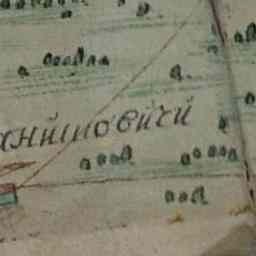 анишовичи